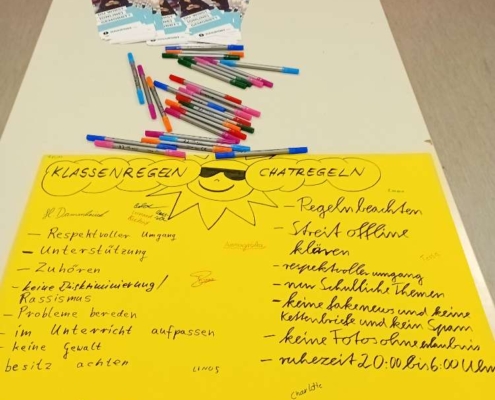 KLASSENREGELN
- Respektvoller Umgang
- Unterstützung
- Zuhören
- keine Diskriminierung/
Rassismus
- Probleme bereden
- im Unterricht aufpassen
- keine Gewalt
besitz achten
LINUS
CHATREGELN
- Regeln beachten
- Streit offline
klären
- respektvoller umgang
- nur Schulliche Themen
- keine fakenews und keine
Kettenbriefe und kein Spam
- keine Fotos ohne erlaubnis
- ruhezeit 20:00 bis 6:00 Uhr
Charlotte